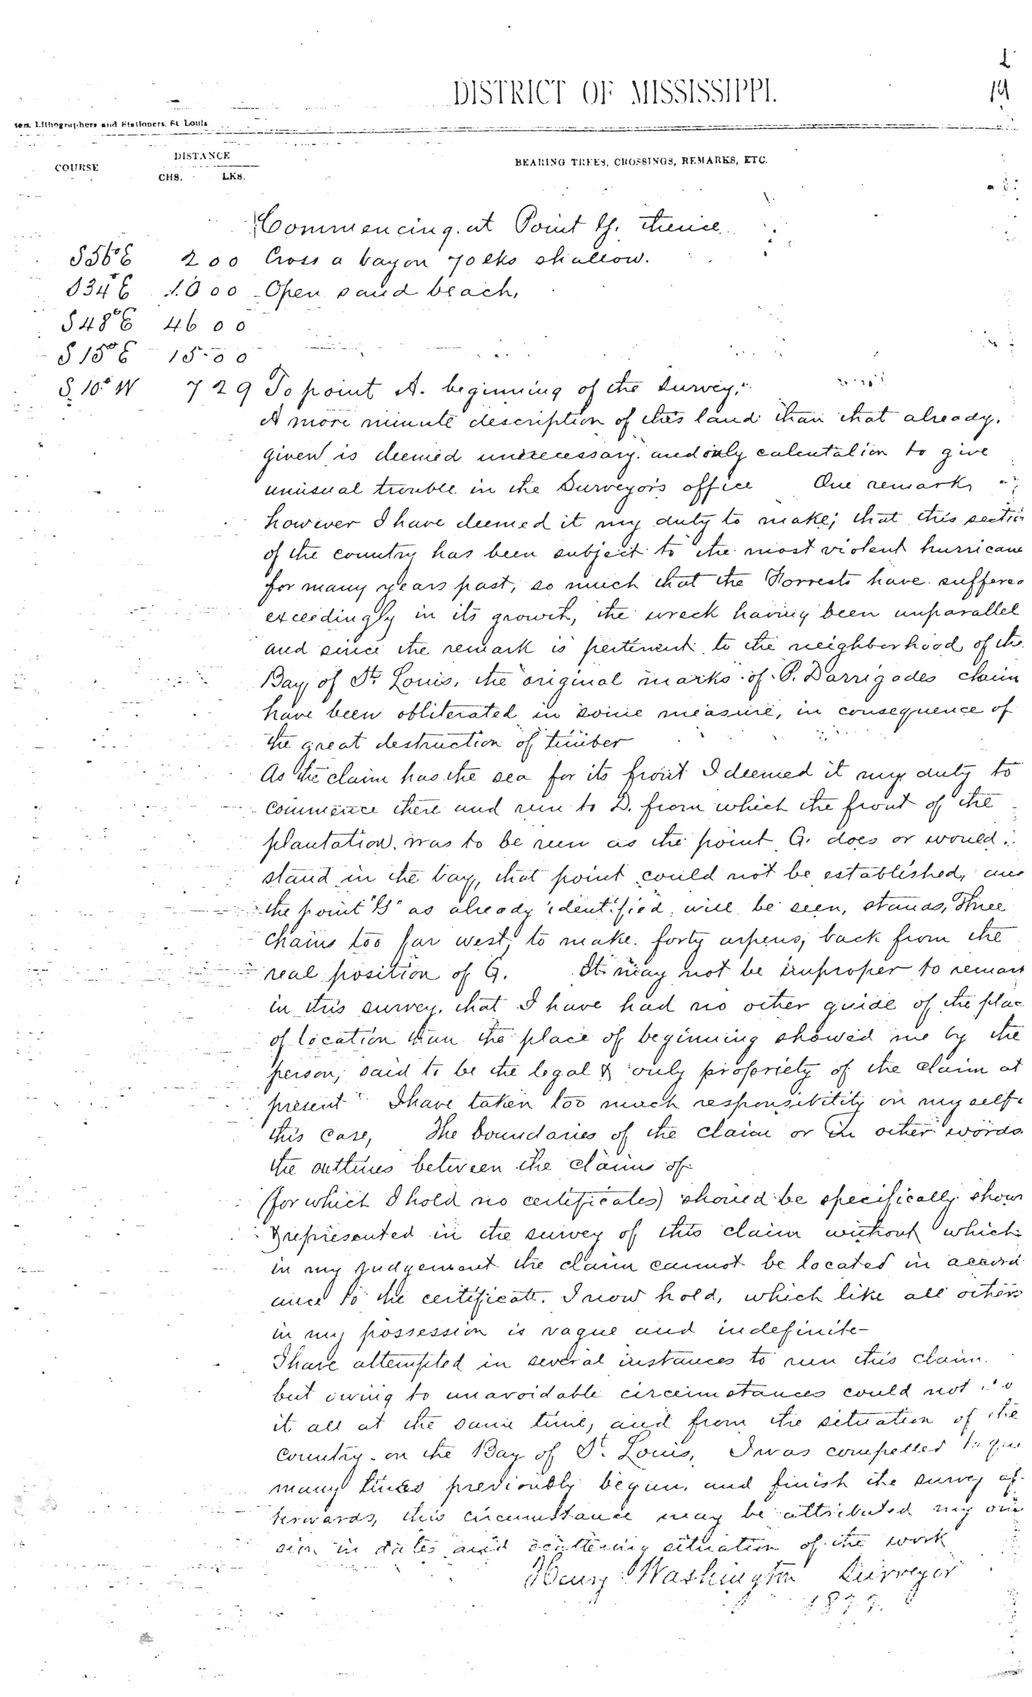 DISTRICT OF MISSISSIPPI.
19
ten, Lithographers and Stationers, St Louis
COURSE
DISTANCE
CHS. LKS.
BEARING TREES, CROSSINGS, REMARKS, ETC.
Commencing at Point G. thence
S 56° E 2 00 Cross a bayou 70 lks shallow.
S 34° E 10 00 Open sand beach,
S 48° E 46 00
S 15° E 15 00
S 10° W 7 29 To point A. beginning of the survey.
A more minute description of this land than that already
given is deemed unnecessary and only calculation to give
unusual trouble in the Surveyor's office One remark
however I have deemed it my duty to make; that this sectio
of the country has been subject to the most violent hurricane
for many years past, so much that the Forrests have suffered
exceedingly in its growth, the wreck having been unparallel
and since the remark is pertinent to the neighborhood of the
Bay of St. Louis, the original marks of P. Darrigodes claim
have been obliterated in some measure, in consequence of
the great destruction of timber
As the claim has the sea for its front I deemed it my duty to
commence there and run to D. from which the front of the
plantation was to be run as the point G. does or would
stand in the bay, that point could not be established, and
the point "G" as already identified will be seen, stands, Three
chains too far west, to make forty arpens, back from the
real position of G. It may not be improper to remark
in this survey, that I have had no other guide of the plac
of location than the place of beginning showed me by the
person, said to be the legal & only propriety of the claim at
present I have taken too much responsibility on myself
this case, The boundaries of the claim or in other words
the outlines between the claims of
(for which I hold no certificates) should be specifically shown
& represented in the survey of this claim without which
in my judgement the claim cannot be located in accord
ance to the certificate. I now hold, which like all others
in my possession is vague and indefinite-
I have attempted in several instances to run this claim
but owing to unavoidable circumstances could not
it all at the same time, and from the situation of the
country on the Bay of St. Louis, I was compelled to
many lines previously begun, and finish the survey af-
terwards, this circumstance may be attributed my
sion in dates and scattering situation of the work
Henry Washington Surveyor